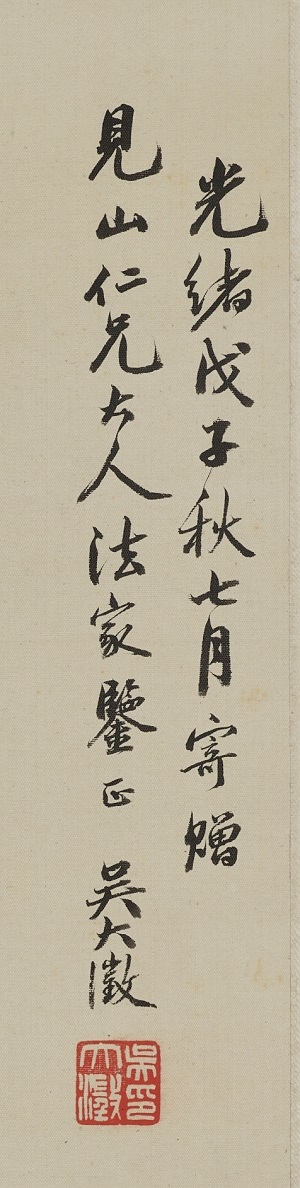 光緒戊子秋七月寄贈
見山仁兄大人法家鑒正 吳大澂
吳印大澂